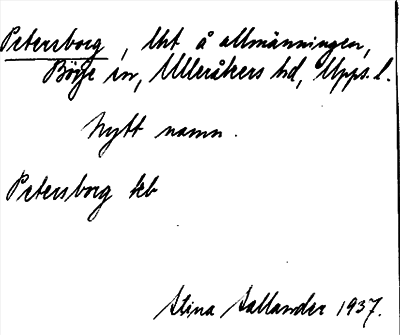 Petersborg, lht å allmänningen,
Börje sn, Ulleråkers hd, Upps. l.
Nytt namn.
Petersborg kb
Stina Sallander 1937.